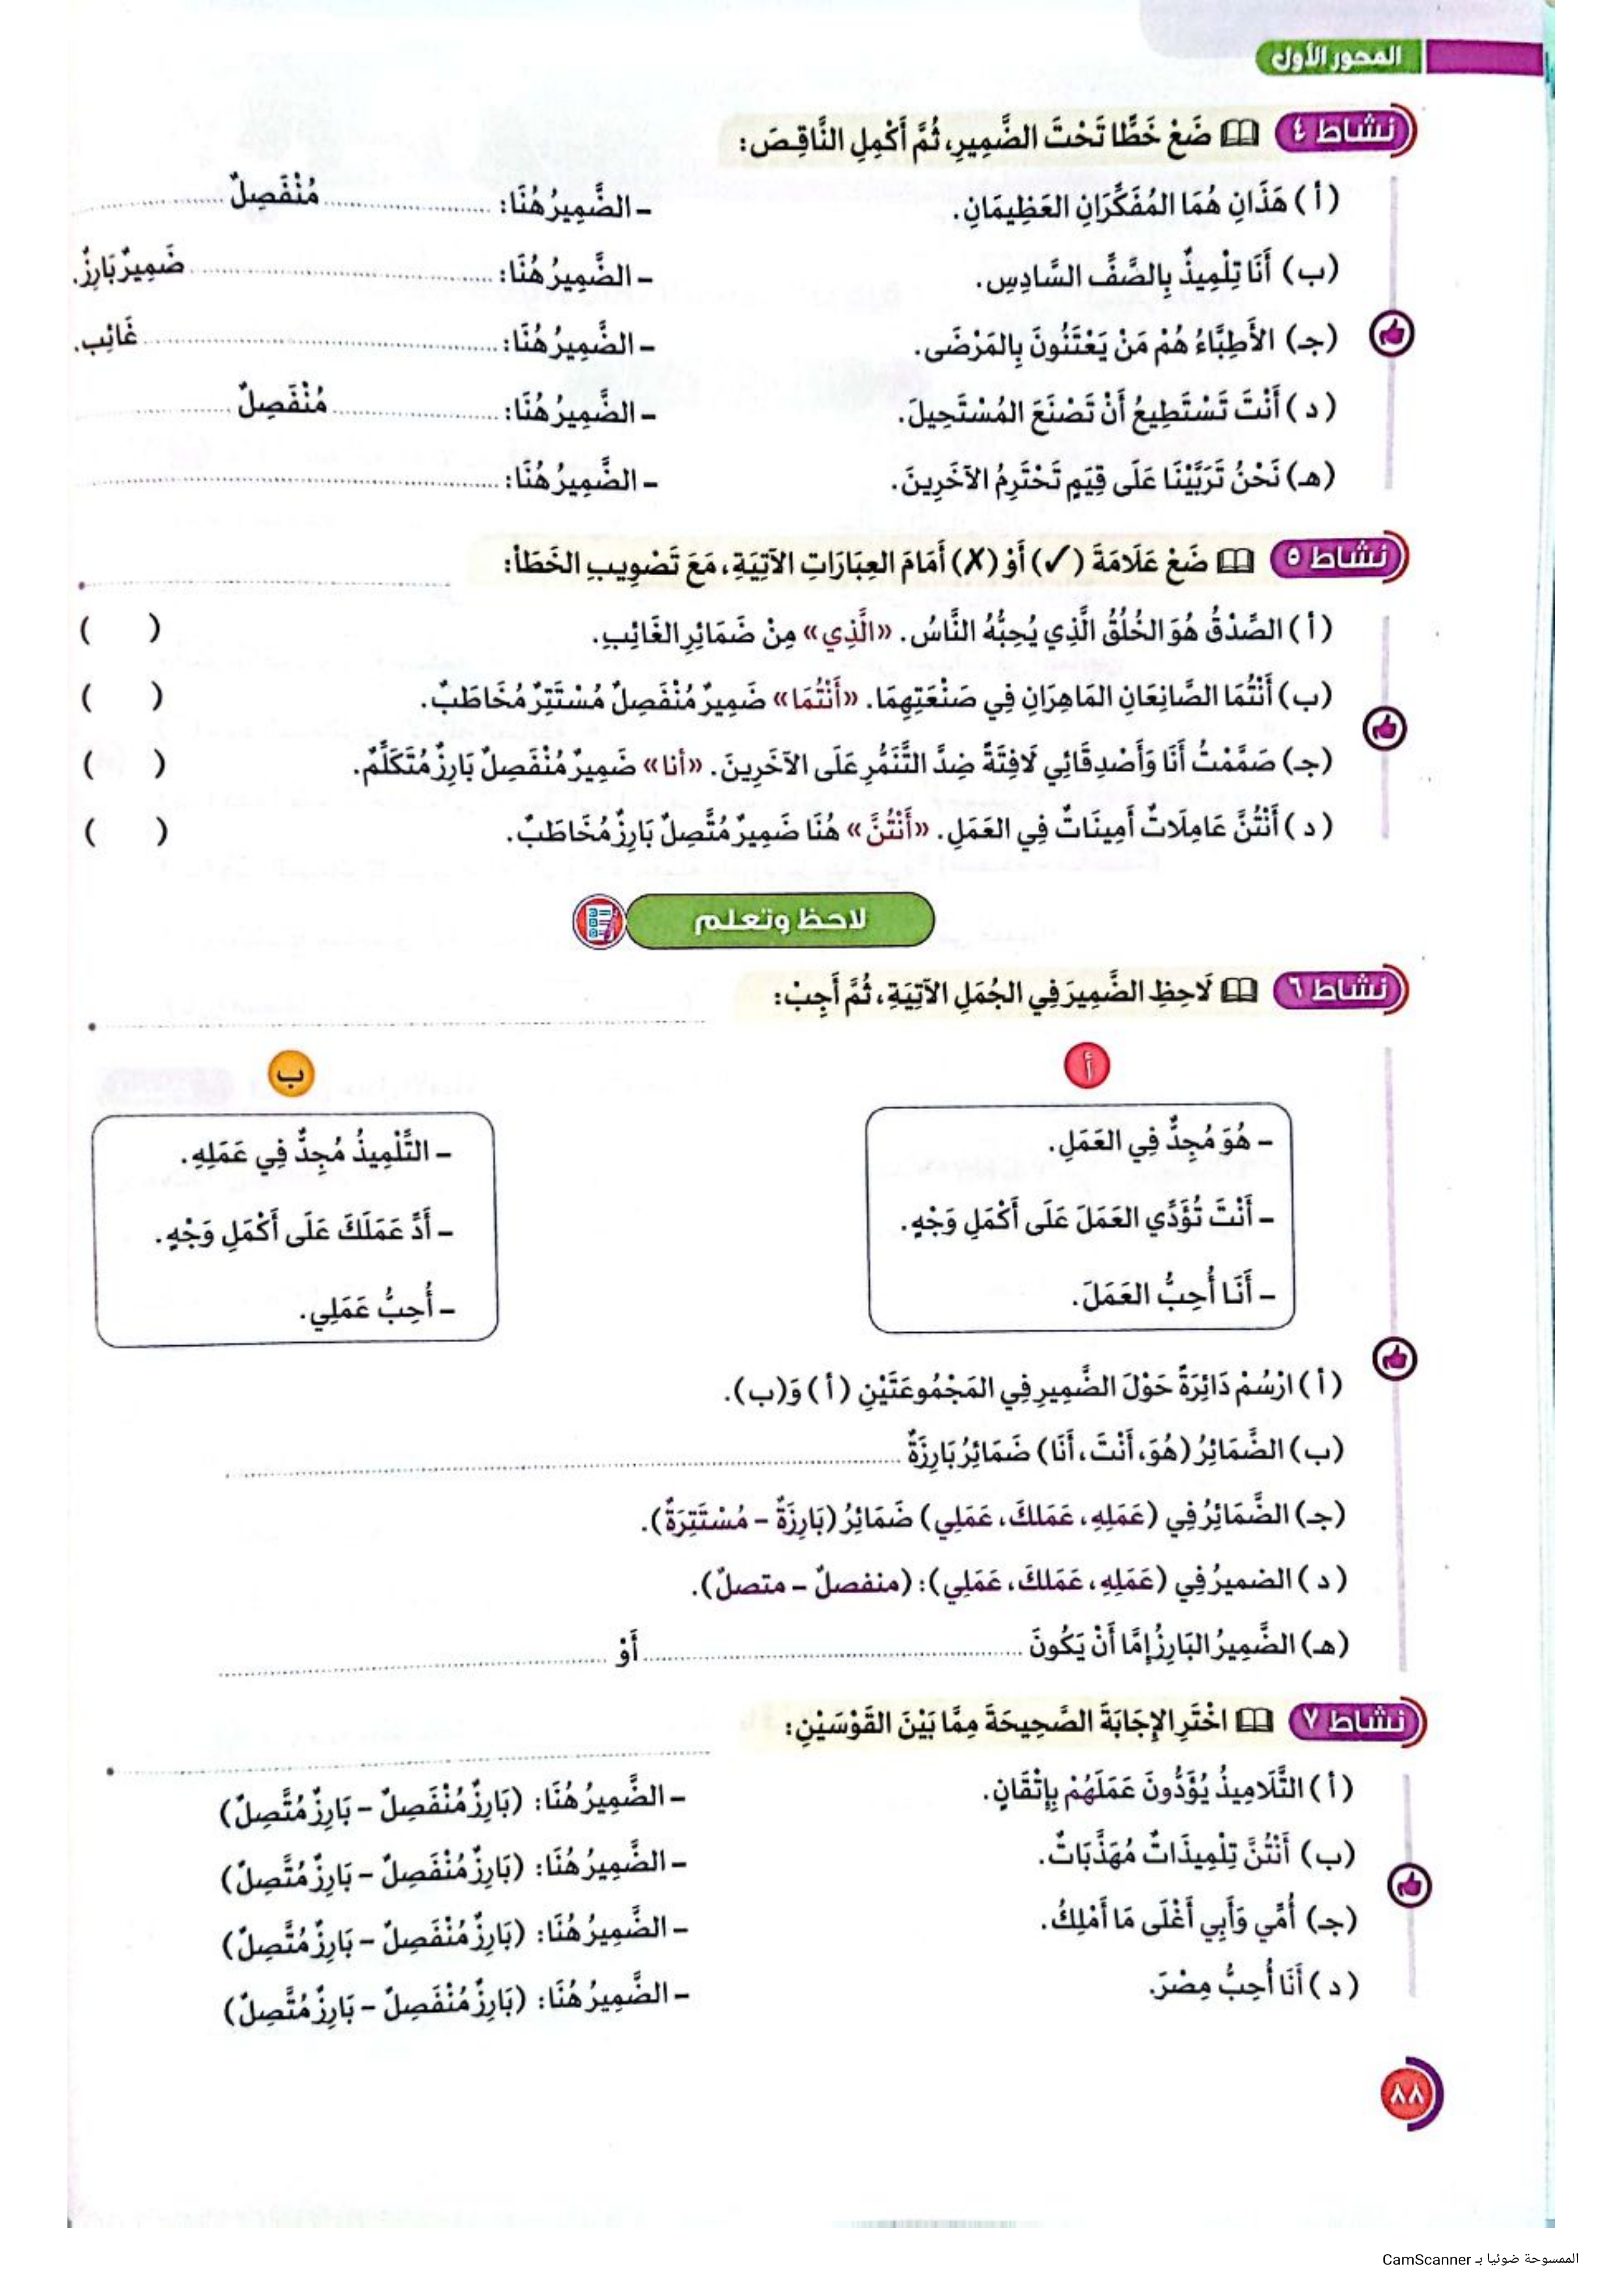 المحور الأول
نشاط ٤ ضَعْ خَطًّا تَحْتَ الضَّمِيرِ، ثُمَّ أَكْمِلِ النَّاقِصَ:
(أ) هَذَانِ هُمَا المُفَكِّرَانِ العَظِيمَانِ. - الضَّمِيرُ هُنَا: .................... مُنْفَصِلٌ ....................
(ب) أَنَا تِلْمِيذٌ بِالصَّفِّ السَّادِسِ. - الضَّمِيرُ هُنَا: .................... ضَمِيرٌ بَارِزٌ.
(جـ) الأَطِبَّاءُ هُمْ مَنْ يَعْتَنُونَ بِالمَرْضَى. - الضَّمِيرُ هُنَا: .................... غَائِب.
(د) أَنْتَ تَسْتَطِيعُ أَنْ تَصْنَعَ المُسْتَحِيلَ. - الضَّمِيرُ هُنَا: .................... مُنْفَصِلٌ ....................
(هـ) نَحْنُ تَرَبَّيْنَا عَلَى قِيَمٍ تَحْتَرِمُ الآخَرِينَ. - الضَّمِيرُ هُنَا: ....................
نشاط ٥ ضَعْ عَلَامَةَ (✓) أَوْ (✗) أَمَامَ العِبَارَاتِ الآتِيَةِ، مَعَ تَصْوِيبِ الخَطَأ:
(أ) الصِّدْقُ هُوَ الخُلُقُ الَّذِي يُحِبُّهُ النَّاسُ. «الَّذِي» مِنْ ضَمَائِرِ الغَائِبِ. ( )
(ب) أَنْتُمَا الصَّانِعَانِ المَاهِرَانِ فِي صَنْعَتِهِمَا. «أَنْتُمَا» ضَمِيرٌ مُنْفَصِلٌ مُسْتَتِرٌ مُخَاطَبٌ. ( )
(جـ) صَمَّمْتُ أَنَا وَأَصْدِقَائِي لَافِتَةً ضِدَّ التَّنَمُّرِ عَلَى الآخَرِينَ. «أنا» ضَمِيرٌ مُنْفَصِلٌ بَارِزٌ مُتَكَلِّمٌ. ( )
(د) أَنْتُنَّ عَامِلَاتٌ أَمِينَاتٌ فِي العَمَلِ. «أَنْتُنَّ» هُنَا ضَمِيرٌ مُتَّصِلٌ بَارِزٌ مُخَاطَبٌ. ( )
لاحظ وتعلم
نشاط ٦ لَاحِظِ الضَّمِيرَ فِي الجُمَلِ الآتِيَةِ، ثُمَّ أَجِبْ:
أ
- هُوَ مُجِدٌّ فِي العَمَلِ.
- أَنْتَ تُؤَدِّي العَمَلَ عَلَى أَكْمَلِ وَجْهٍ.
- أَنَا أُحِبُّ العَمَلَ.
ب
- التِّلْمِيذُ مُجِدٌّ فِي عَمَلِهِ.
- أَدِّ عَمَلَكَ عَلَى أَكْمَلِ وَجْهٍ.
- أُحِبُّ عَمَلِي.
(أ) ارْسُمْ دَائِرَةً حَوْلَ الضَّمِيرِ فِي المَجْمُوعَتَيْنِ (أ) وَ(ب).
(ب) الضَّمَائِرُ (هُوَ، أَنْتَ، أَنَا) ضَمَائِرُ بَارِزَةٌ ....................
(جـ) الضَّمَائِرُ فِي (عَمَلِهِ، عَمَلكَ، عَمَلِي) ضَمَائِرُ (بَارِزَةٌ - مُسْتَتِرَةٌ).
(د) الضميرُ فِي (عَمَلِهِ، عَمَلكَ، عَمَلِي): (منفصلٌ - متصلٌ).
(هـ) الضَّمِيرُ البَارِزُ إِمَّا أَنْ يَكُونَ .................... أَوْ ....................
نشاط ٧ اخْتَرِ الإِجَابَةَ الصَّحِيحَةَ مِمَّا بَيْنَ القَوْسَيْنِ:
(أ) التَّلَامِيذُ يُؤَدُّونَ عَمَلَهُمْ بِإِتْقَانٍ. - الضَّمِيرُ هُنَا: (بَارِزٌ مُنْفَصِلٌ - بَارِزٌ مُتَّصِلٌ)
(ب) أَنْتُنَّ تِلْمِيذَاتٌ مُهَذَّبَاتٌ. - الضَّمِيرُ هُنَا: (بَارِزٌ مُنْفَصِلٌ - بَارِزٌ مُتَّصِلٌ)
(جـ) أُمِّي وَأَبِي أَغْلَى مَا أَمْلِكُ. - الضَّمِيرُ هُنَا: (بَارِزٌ مُنْفَصِلٌ - بَارِزٌ مُتَّصِلٌ)
(د) أَنَا أُحِبُّ مِصْرَ. - الضَّمِيرُ هُنَا: (بَارِزٌ مُنْفَصِلٌ - بَارِزٌ مُتَّصِلٌ)
٨٨
الممسوحة ضوئيا بـ CamScanner